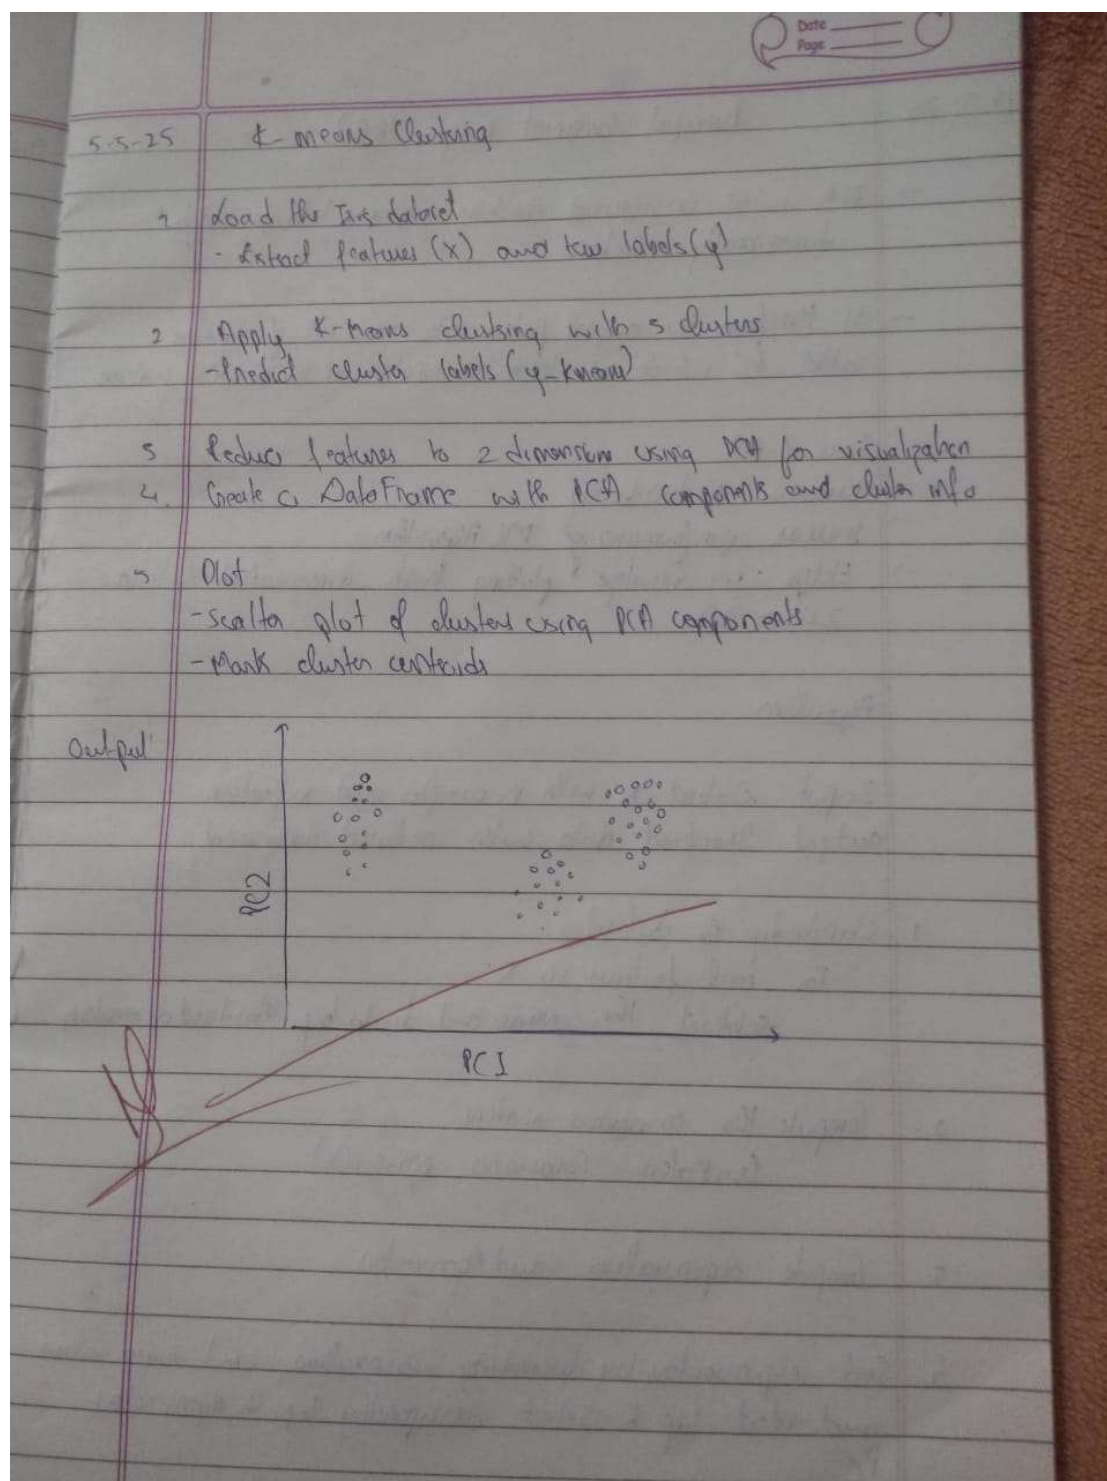 Date
Page
5-5-25 K-means Clustering
1 Load the Iris dataset
- Extract features (X) and true labels (y)
2 Apply K-Means clustering with 3 clusters
- Predict cluster labels (y-kmeans)
3 Reduce features to 2 dimensions using PCA for visualization
4. Create a DataFrame with PCA components and cluster info
5 Plot
- Scatter plot of clusters using PCA components
- Mark cluster centroids
Output
PC2
PC1